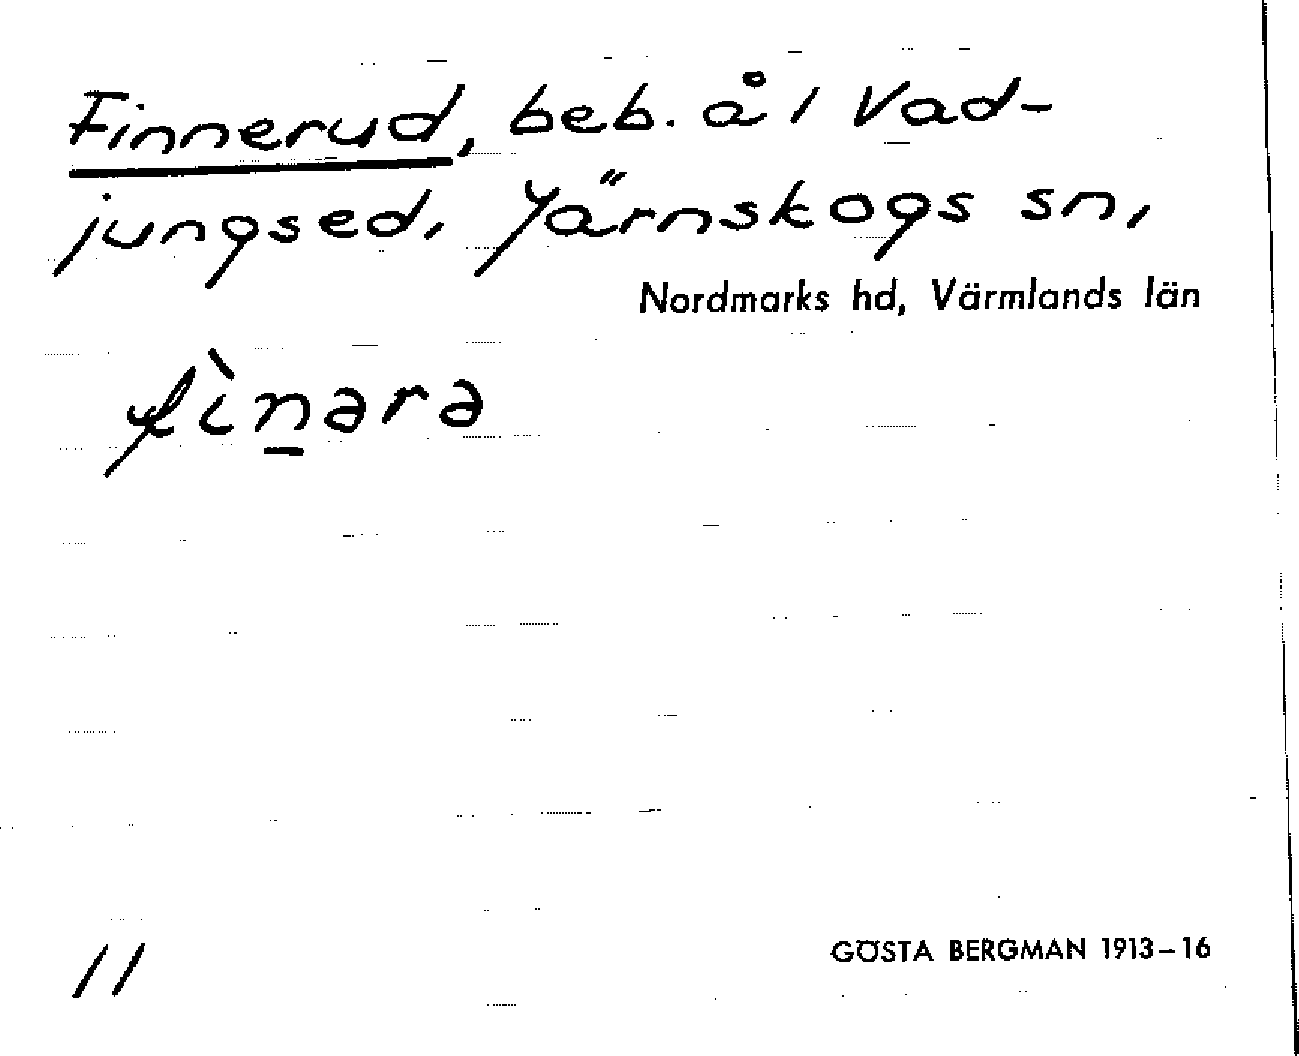 Finnerud, beb. å 1 Vad-
jungsed, Järnskogs sn,
Nordmarks hd, Värmlands län
fìn̲ərə
11
GÖSTA BERGMAN 1913–16